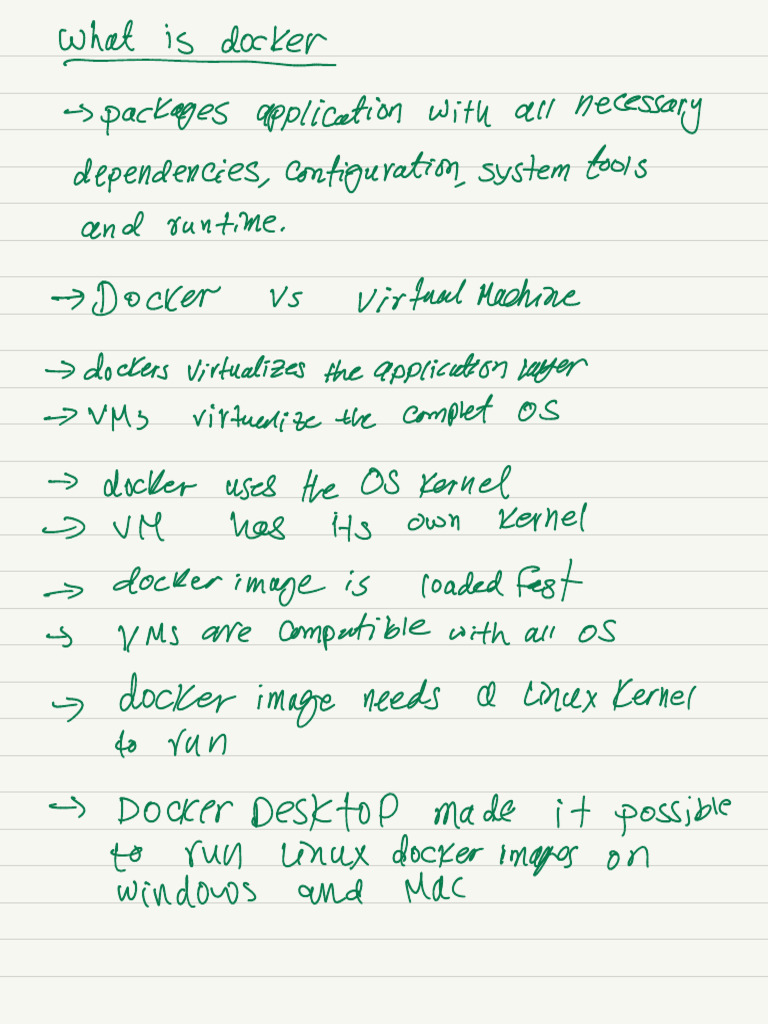 What is docker
→ packages application with all necessary
dependencies, configuration, system tools
and runtime.
→ Docker vs Virtual Machine
→ dockers virtualizes the application layer
→ VMs virtualize the complet OS
→ docker uses the OS kernel
→ VM has its own kernel
→ docker image is loaded fast
→ VMs are compatible with all OS
→ docker image needs a Linux Kernel
to run
→ Docker Desktop made it possible
to run Linux docker images on
windows and Mac